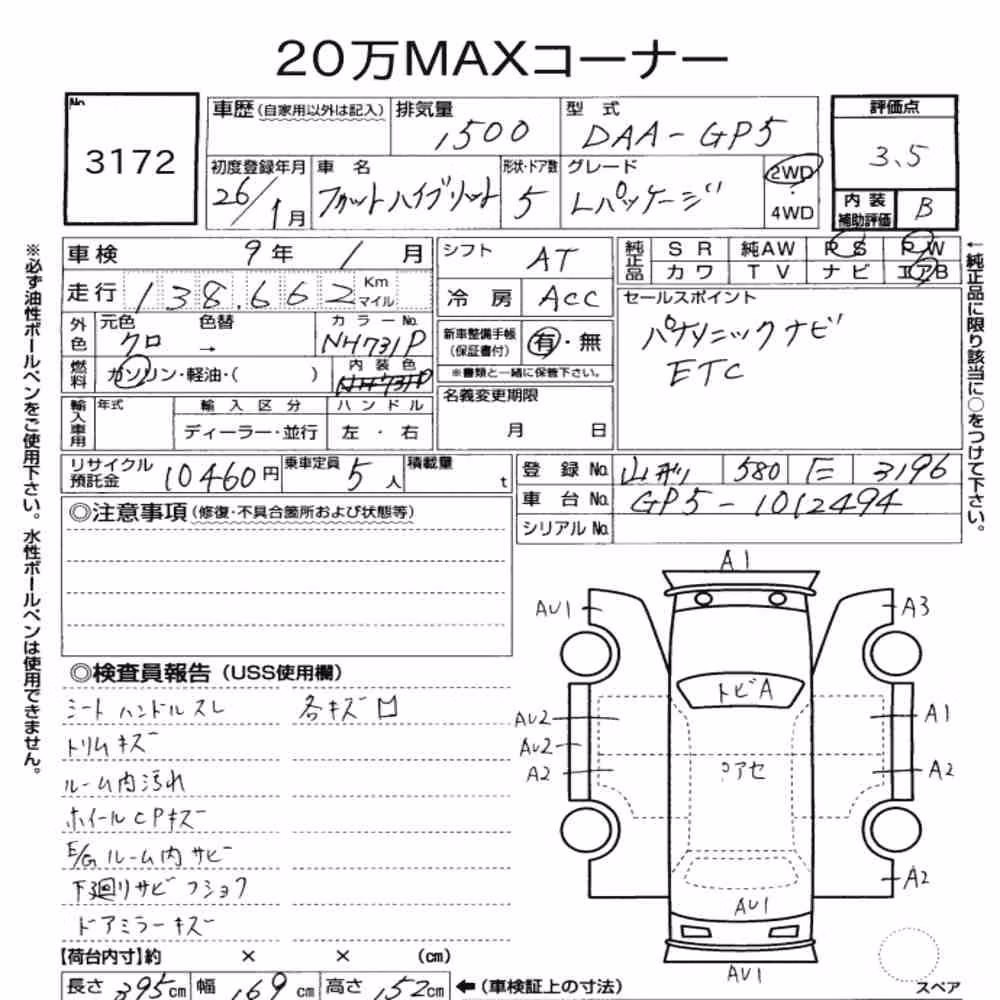 20万MAXコーナー
No.
3172
車歴(自家用以外は記入)
排気量
1500
型式
DAA-GP5
評価点
3.5
初度登録年月
26/1月
車名
フィットハイブリット
形状・ドア数
5
グレード
Lパッケージ
2WD
・
4WD
内装
補助評価
B
※必ず油性ボールペンをご使用下さい。水性ボールペンは使用できません。
車検
9年1月
シフト
AT
純正品
SR
純AW
PS
PW
カワ
TV
ナビ
エアB
←純正品に限り該当に○をつけて下さい。
走行
138,662
Km
マイル
冷房
ACC
セールスポイント
パナソニックナビ
ETC
外色
元色
クロ
色替
→
カラーNo.
NH731P
新車整備手帳
(保証書付)
有・無
※書類と一緒に保管下さい。
燃料
ガソリン・軽油・( )
内装色
NH731P
名義変更期限
月 日
輸入車用
年式
輸入区分
ディーラー・並行
ハンドル
左・右
リサイクル
預託金
10460円
乗車定員
5人
積載量
t
登録No.
山形
580
3196
車台No.
GP5-1012494
シリアルNo.
◎注意事項(修復・不具合箇所および状態等)
◎検査員報告(USS使用欄)
シートハンドルスレ
各キズ凹
トリムキズ
ルーム内汚れ
ホイールCPキズ
E/Gルーム内サビ
下廻りサビフショク
ドアミラーキズ
A1
AU1
A3
トビA
AU2
A1
AU2
A2
アセ
A2
A2
AU1
AU1
スペア
【荷台内寸】約 × × (cm)
長さ 395cm
幅 169cm
高さ 152cm
←(車検証上の寸法)